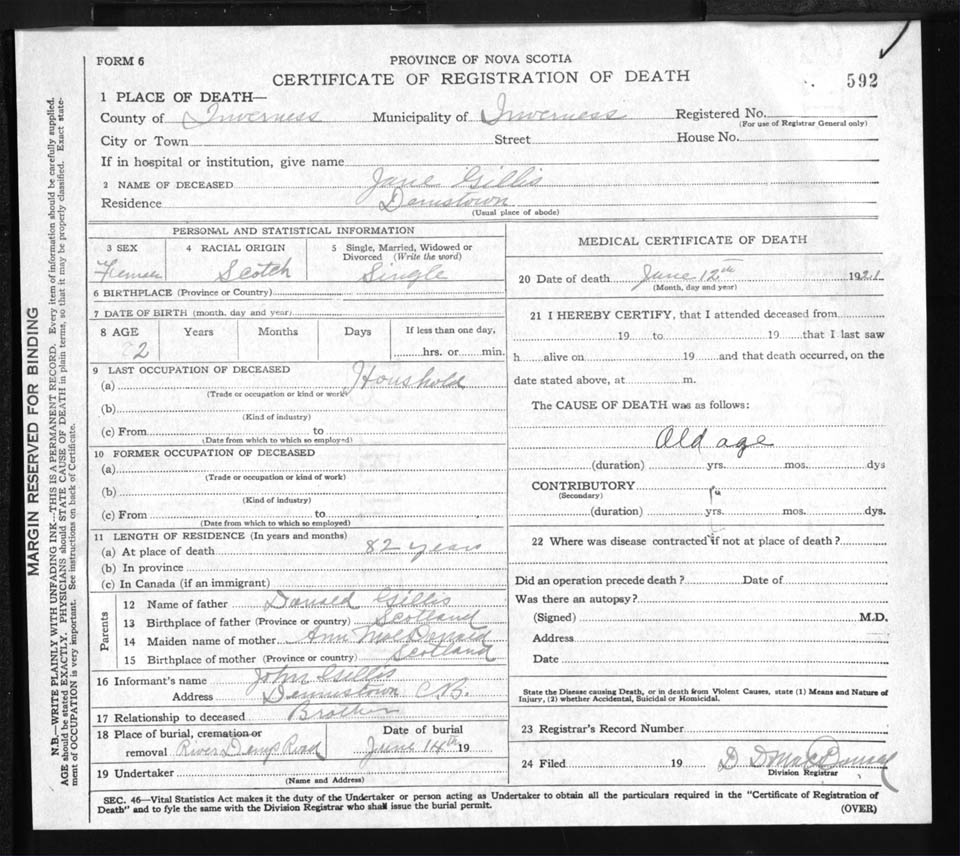 FORM 6
PROVINCE OF NOVA SCOTIA
CERTIFICATE OF REGISTRATION OF DEATH
592
1 PLACE OF DEATH—
County of Inverness Municipality of Inverness Registered No.
(For use of Registrar General only)
City or Town Street House No.
If in hospital or institution, give name
2 NAME OF DECEASED Jane Gillis
Residence
(Usual place of abode)
PERSONAL AND STATISTICAL INFORMATION
3 SEX 4 RACIAL ORIGIN 5 Single, Married, Widowed or Divorced (Write the word)
Scotch Single
6 BIRTHPLACE (Province or Country)
7 DATE OF BIRTH (month, day and year)
8 AGE Years Months Days If less than one day,
82 hrs. or min.
9 LAST OCCUPATION OF DECEASED
(a) Houshold
(Trade or occupation or kind or work)
(b)
(Kind of industry)
(c) From to
(Date from which to which so employed)
10 FORMER OCCUPATION OF DECEASED
(a)
(Trade or occupation or kind of work)
(b)
(Kind of industry)
(c) From to
(Date from which to which so employed)
11 LENGTH OF RESIDENCE (In years and months)
(a) At place of death 82 years
(b) In province
(c) In Canada (if an immigrant)
Parents
12 Name of father Donald Gillis
13 Birthplace of father (Province or country) Scotland
14 Maiden name of mother Ann MacDonald
15 Birthplace of mother (Province or country) Scotland
16 Informant's name John Gillis
Address C B.
17 Relationship to deceased Brother
18 Place of burial, cremation or Date of burial
removal River Road June 14th 19
19 Undertaker
(Name and Address)
MEDICAL CERTIFICATE OF DEATH
20 Date of death June 12th 1921
(Month, day and year)
21 I HEREBY CERTIFY, that I attended deceased from
19 to 19 that I last saw
h alive on 19 and that death occurred, on the
date stated above, at m.
The CAUSE OF DEATH was as follows:
Old age
(duration) yrs. mos. dys
CONTRIBUTORY
(Secondary)
(duration) yrs. mos. dys.
22 Where was disease contracted if not at place of death?
Did an operation precede death? Date of
Was there an autopsy?
(Signed) M.D.
Address
Date
State the Disease causing Death, or in death from Violent Causes, state (1) Means and Nature of
Injury, (2) whether Accidental, Suicidal or Homicidal.
23 Registrar's Record Number
24 Filed 19 D D MacDonald
Division Registrar
SEC. 46—Vital Statistics Act makes it the duty of the Undertaker or person acting as Undertaker to obtain all the particulars required in the "Certificate of Registration of
Death" and to fyle the same with the Division Registrar who shall issue the burial permit.
(OVER)
MARGIN RESERVED FOR BINDING
N.B.—WRITE PLAINLY WITH UNFADING INK—THIS IS A PERMANENT RECORD. Every item of information should be carefully supplied.
AGE should be stated EXACTLY. PHYSICIANS should STATE CAUSE OF DEATH in plain terms, so that it may be properly classified. Exact state-
ment of OCCUPATION is very important. See instructions on back of Certificate.